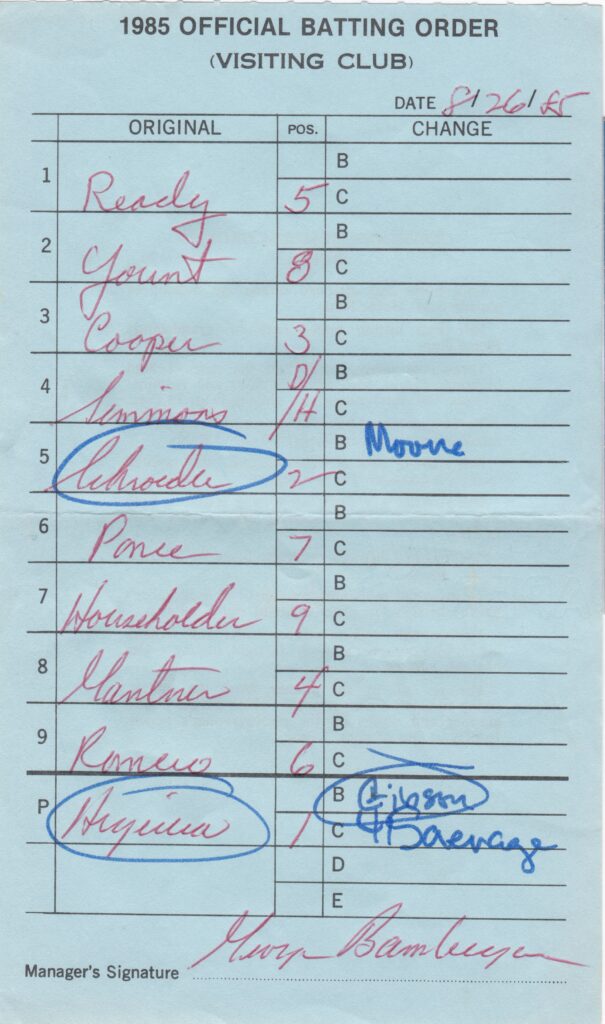 1985 OFFICIAL BATTING ORDER
(VISITING CLUB)
DATE 8/26/85
ORIGINAL POS. CHANGE
1 Ready 5 B
C
2 Yount 8 B
C
3 Cooper 3 B
C
4 Simmons D/H B
C
5 Schroeder 2 B Moore
C
6 Ponce 7 B
C
7 Householder 9 B
C
8 Gantner 4 B
C
9 Romero 6 B
C
P Higuera 1 B Gibson
C Darwin
D
E
Manager's Signature George Bamberger